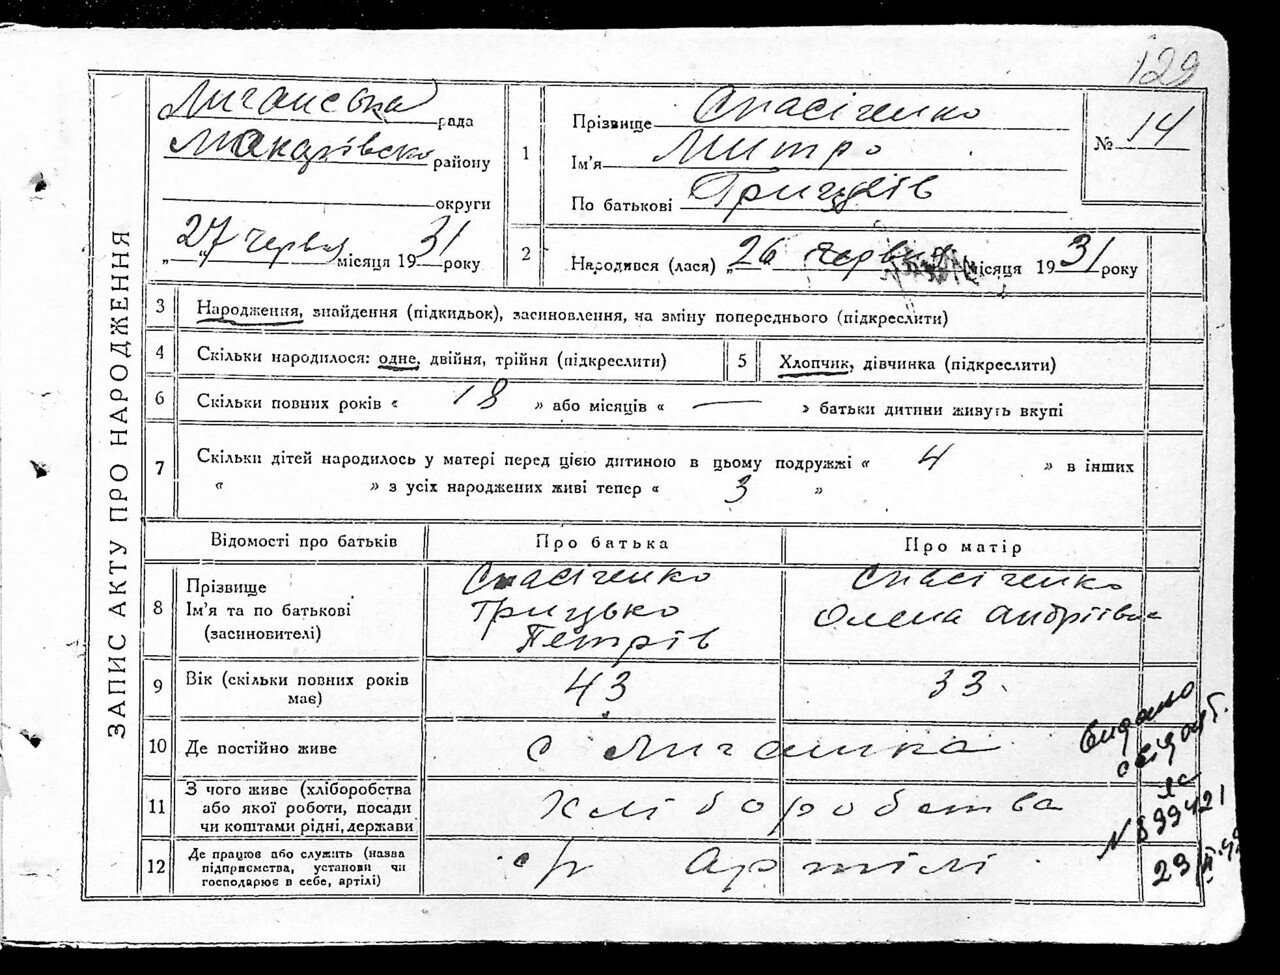 129
ЗАПИС АКТУ ПРО НАРОДЖЕННЯ
Личанська рада
Макарівсько району
округи
„27" червня місяця 1931 року
1
Прізвище Спасіченко
Ім'я Митро
По батькові Грицьків
№ 14
2
Народився (лася) „26 червня місяця 1931 року
3 Народження, знайдення (підкидьок), засиновлення, на зміну попереднього (підкреслити)
4 Скільки народилося: одне, двійня, трійня (підкреслити)
5 Хлопчик, дівчинка (підкреслити)
6 Скільки повних років « 18 » або місяців « — » батьки дитини живуть вкупі
7 Скільки дітей народилось у матері перед цією дитиною в цьому подружжі « 4 » в інших
« » з усіх народжених живі тепер « 3 »
Відомості про батьків Про батька Про матір
8 Прізвище
Ім'я та по батькові
(засиновителі)
Спасіченко
Грицько
Петрів
Спасіченко
Олена Андріївна
9 Вік (скільки повних років
має)
43 33
10 Де постійно живе с Личанка
11 З чого живе (хліборобства
або якої роботи, посади
чи коштами рідні, держави
хліборобства
12 Де працює або служить (назва
підприємства, установи чи
господарює в себе, артілі)
с/г артілі
Видано
свідоцт.
№ 899421
23